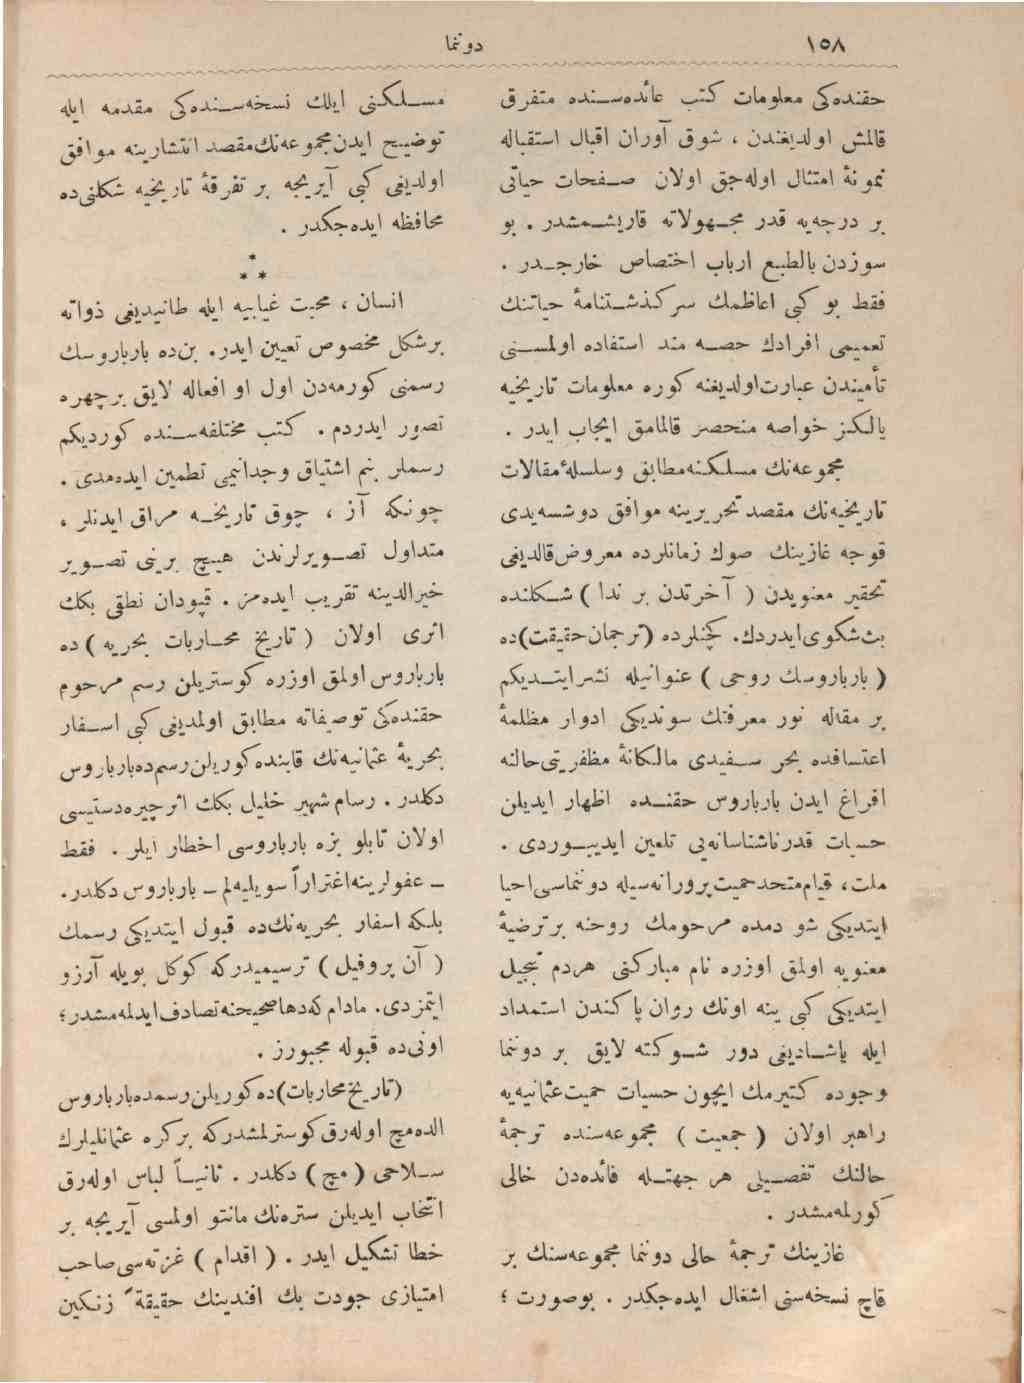 ١٥٨
دوننما
حقنده‌كی معلومات كتب عائده‌سـنده متفرق
قالمش اولديغندن ، شوق آوران اقبال استقباله
نمونۀ امتثال اوله‌جق اولان صـفحات حياتی
بر درجه‌يه قدر مجـهولاته قاريشـمشدر . بو
سوزدن بالطبـع ارباب اختصاص خارجـدر .
فقط بو كبی اعاظمك سركذشـتنامۀ حياتنك
تعميمی افرادك حصـه مند استفاده اولمسـنی
تأميندن عبارت‌اولديغنه كوره معلومات تاريخيه
يالـكز خواصه منحصر قالمامق ايجاب ايدر .
مجموعه‌نك مسلـكـنه‌مطابق وسلسلۀ‌مقالات
تاريخيه‌نك مقصد تحريرينه موافق دوشسه‌يدی
قوجه غازينك صوك زمانلرده معروض‌قالديغی
تحقير معنويدن ( آخرتدن بر ندا ) شـكلنده
بث‌شكوی‌ايدردك. كچنلرده (ترجمان‌حقيقت)ده
( بارباروسك روحی ) عنوانيله نشرايتـديكم
بر مقاله نور معرفتك سونديكی ادوار مظلمۀ
اعتسافده بحر سـفيدی مالكانۀ مظفريتی‌حالنه
افراغ ايدن بارباروس حقنـده اظهار ايديلن
حسيات قدرناشناسانه‌يی تلعين ايديـوردی .
ملت، قيام‌متحدحميت‌پرورانه‌سيله دوننماسی‌احيا
ايتديكی شو دمده مرحومك روحنه برترضيۀ
معنويه اولمق اوزره نام مباركنی هردم تبجيل
ايتديكی كبی ينه اونك روان پاكندن استمداد
ايله ياشـاديغی دور شـوكته لايق بر دوننما
وجوده كتيرمك ايچون حسيات حميت‌عثمانيه‌يه
راهبر اولان ( جمعيت ) مجموعه‌سنده ترجمۀ
حالنك تفصـيلی هر جهتـله فائده‌دن خالی
كورلمه‌مشدر .
غازينك ترجمۀ حالی دوننما مجموعه‌سنك بر
قاچ نسخه‌سنی اشغال ايده‌جكدر . بوصورت ؛
مسـلـكـنی ايلك نسخه‌سـنده‌كی مقدمه ايله
توضيـح ايدن‌مجموعه‌نك‌مقصد انتشارينه موافق
اولديغی كبی آيريجه بر تفرقۀ تاريخيه شكلنی‌ده
محافظه ايده‌جكدر .
*
* *
انسان ، محبت غيابيه ايله طانيديغی ذواته
برشكل مخصوص تعيين ايدر. بن‌ده بارباروسك
رسمنی كورمه‌دن اول او افعاله لايق برچهره
تصور ايدردم . كتب مختلفه‌سـنده كورديكم
رسملر بنم اشتياق وجدانيمی تطمين ايده‌مدی .
چونكه آز ، چوق تاريخـه مراق ايدنلر ،
متداول تصـويرلرندن هيـچ برينی تصـوير
خيرالدينه تقريب ايده‌مز . قپودان نطقی بكك
اثری اولان ( تاريخ محـاربات بحريه ) ده
بارباروس اولمق اوزره كوستريلن رسم مرحوم
حقنده‌كی توصيفاته مطابق اولمديغی كبی اسـفار
بحريۀ عثمانيه‌نك قابنده‌كوريلن‌رسم‌ده‌بارباروس
دكلدر . رسام شهير خليل بكك اثرچيره‌دستيسی
اولان تابلو بزه بارباروسی اخطار ايلر . فقط
ـ عفولرينه‌اغتراراً سويليه‌لم ـ بارباروس دكلدر.
بلـكه اسفار بحريه‌نك‌ده قبول ايتديكی رسمك
( آن پروفيل ) ترسيميدركه كوكل بويله آرزو
ايتمزدی. مادام كه‌دهاصحيحنه‌تصادف‌ايدلمه‌مشدر ؛
اونی‌ده قبوله مجبورز .
(تاريخ‌محاربات)ده‌كوريلن‌رسمده‌بارباروس
الده‌مچ اوله‌رق‌كوسترلمشدركه بركره عثمانليلرك
سـلاحی ( مچ ) دكلدر . ثانيـاً لباس اوله‌رق
انتخاب ايديلن ستره‌نك مانتو اولمسی آيريجه بر
خطا تشكيل ايدر . ( اقدام ) غزته‌سی‌صاحب
امتيازی جودت بك افندينك حقيقةً زنـكين